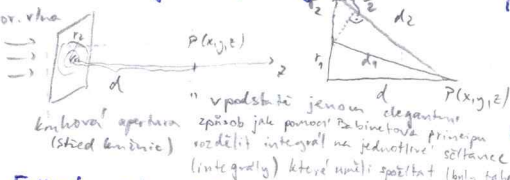 or. vlna
r₂
P(x,y,z)
z
d
r₂
d₂
r₁
d₁
d
P(x,y,z)
kruhová apertura
(střed kružnic)
" v podstatě jenom elegantní
způsob jak pomocí Babinetova principu
rozdělit integrál na jednotlivé sčítance
(integrály) které uměli spočítat (bylo